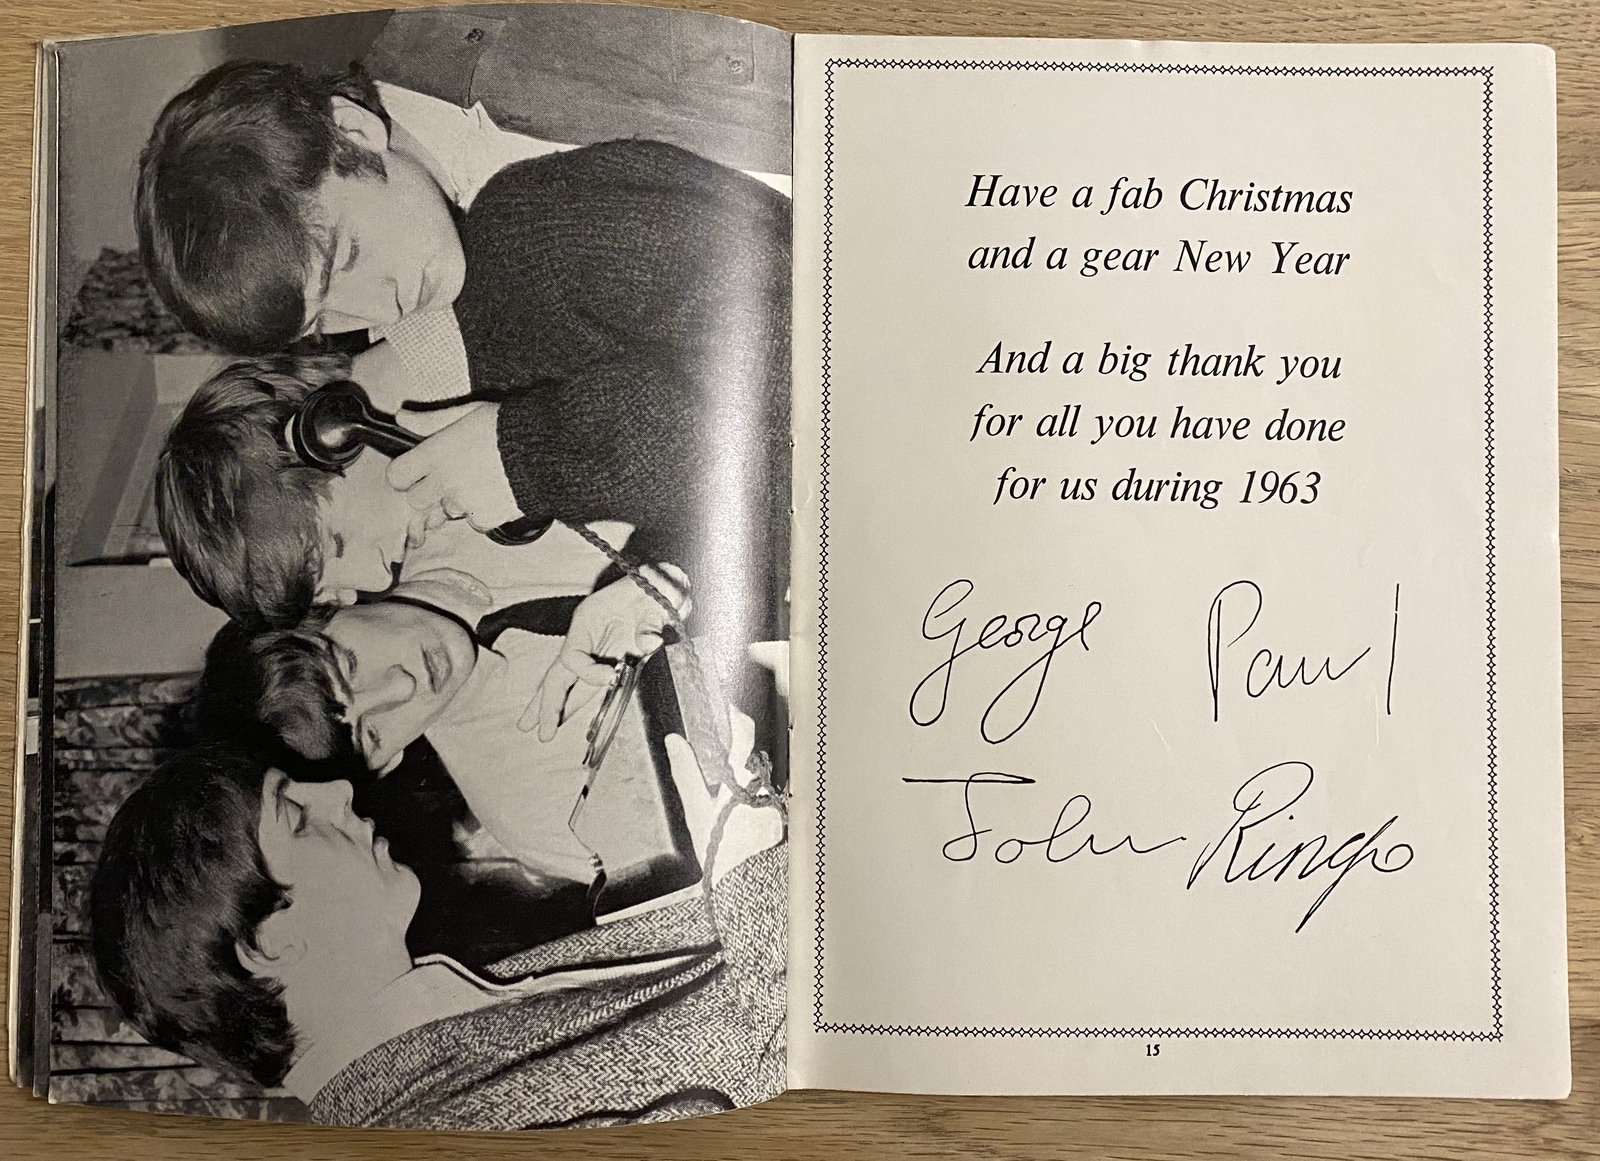 Have a fab Christmas
and a gear New Year
And a big thank you
for all you have done
for us during 1963
George Paul
John Ringo
15